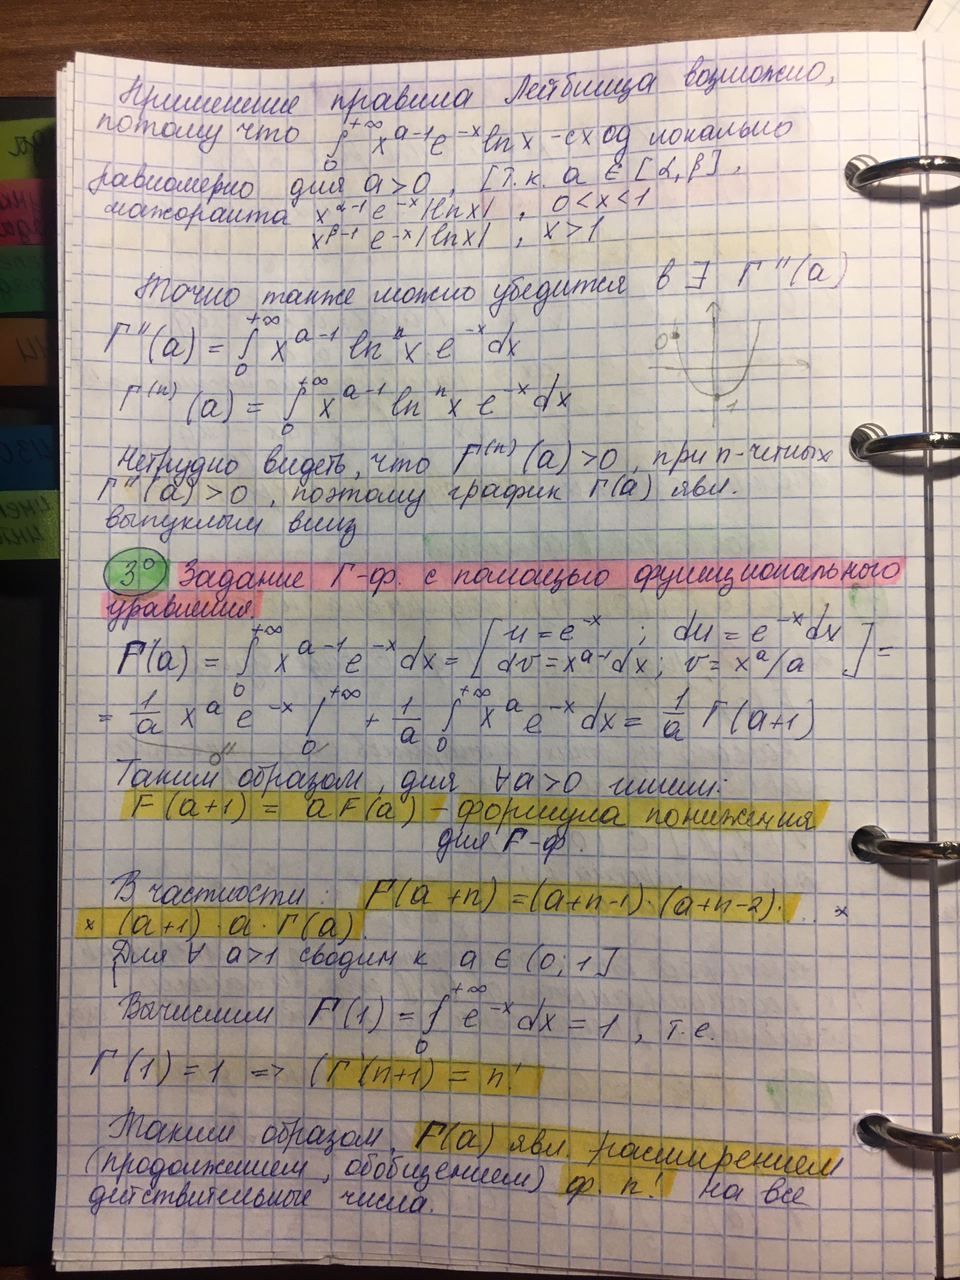 Применение правила Лейбница возможно,
потому что ∫₀^{+∞} x^{a-1} e^{-x} ln x - сход локально
равномерно для a > 0, [т.к. a ∈ [α, β],
мажоранта x^{α-1} e^{-x} |ln x|, 0 < x < 1
x^{β-1} e^{-x} |ln x|, x > 1
Точно также можно убедится в ∃ Г''(a)
Г''(a) = ∫₀^{+∞} x^{a-1} ln^n x e^{-x} dx
Г^{(n)}(a) = ∫₀^{+∞} x^{a-1} ln^n x e^{-x} dx
Нетрудно видеть, что Г^{(n)}(a) > 0, при n-четных
Г''(a) > 0, поэтому график Г(a) явл.
выпуклым вниз
3° Задание Г-ф. с помощью функционального
уравнения.
Г(a) = ∫₀^{+∞} x^{a-1} e^{-x} dx = [u = e^{-x}; du = e^{-x} dx
dv = x^{a-1} dx; v = x^a/a] =
= 1/a x^a e^{-x} |₀^{+∞} + 1/a ∫₀^{+∞} x^a e^{-x} dx = 1/a Г(a+1)
0"
Таким образом, для ∀ a > 0 имеем:
Г(a+1) = a Г(a) - формула понижения
для Г-ф.
В частности: Г(a+n) = (a+n-1)·(a+n-2)· ... ×
× (a+1) · a · Г(a)
Для ∀ a > 1 сводим к a ∈ (0; 1]
Вычислим Г(1) = ∫₀^{+∞} e^{-x} dx = 1, т.е.
Г(1) = 1 => (Г(n+1) = n!
Таким образом, Г(a) явл. расширением
(продолжением, обобщением) ф. n! на все
действительные числа.